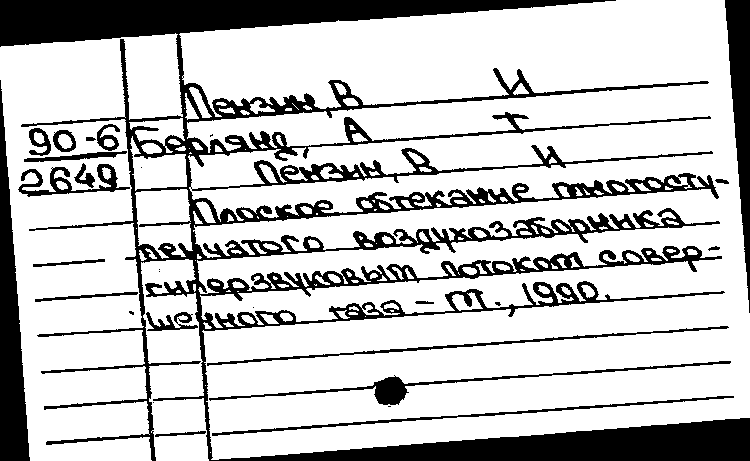 Пензин, В И
90-6 Берлянд, А Т
2649 Пензин, В И
Плоское обтекание многосту-
пенчатого воздухозаборника
гиперзвуковым потоком совер-
шенного газа - М., 1990.